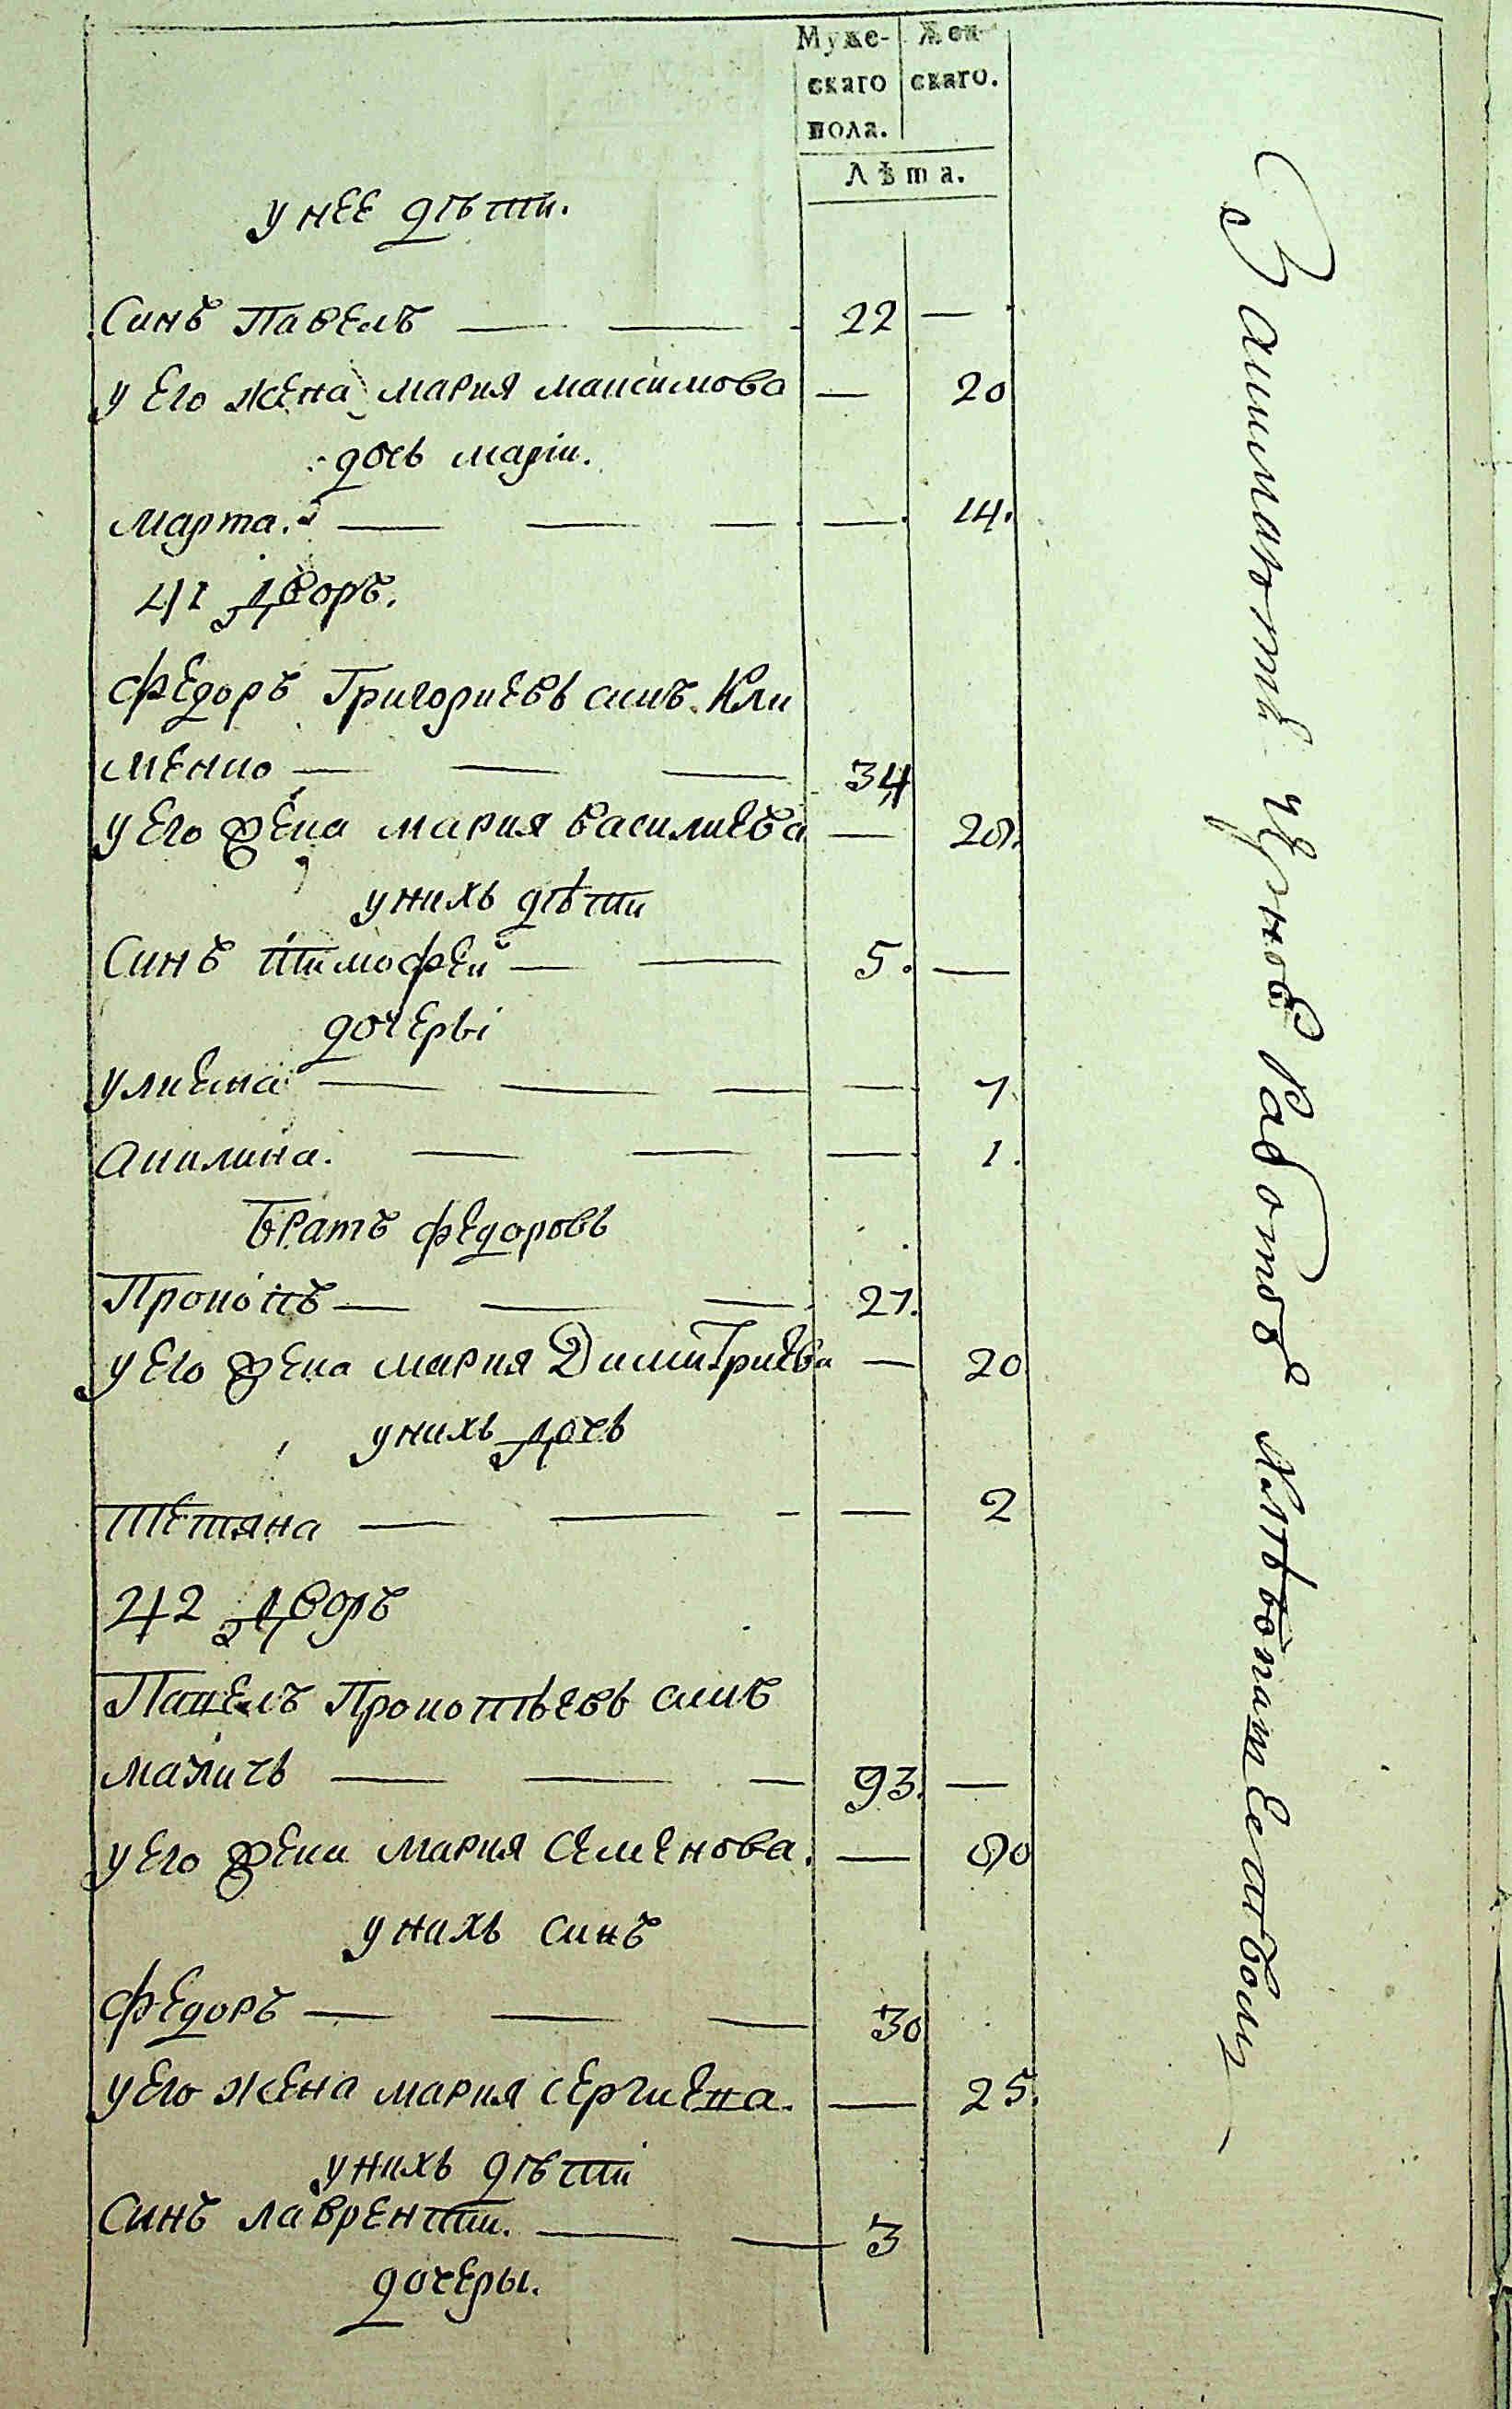 Муже-
скаго
пола.
Жен-
скаго.
Лѣта.
у нее дѣти.
Синъ Павелъ — — - 22 —
у Его жена мария максимова — 20
дочь маріи.
Марта. — — — — 14.
41 дворъ.
Федоръ Григориевъ синъ Кли
менко — — — 34
у Его жена мария василиева — 20.
у нихъ дѣти
Синъ тимофей — — 5. —
дочерьі
улиена — — — — 7.
Акилина. — — — 1.
братъ федоровъ
Прокопъ — — — 27.
у Его жена мария Димитриева — 20
у нихъ дочь
Тетяна — — - — 2
42 дворъ
Павелъ Прокопьевъ синъ
— — — 93. —
у Его жена мария Семенова. — 80
у нихъ синъ
Федоръ — — — 30
у Его жена мария Сергиена. — 25.
у нихъ дѣти
Синъ лаврентии. — — 3
дочеры.